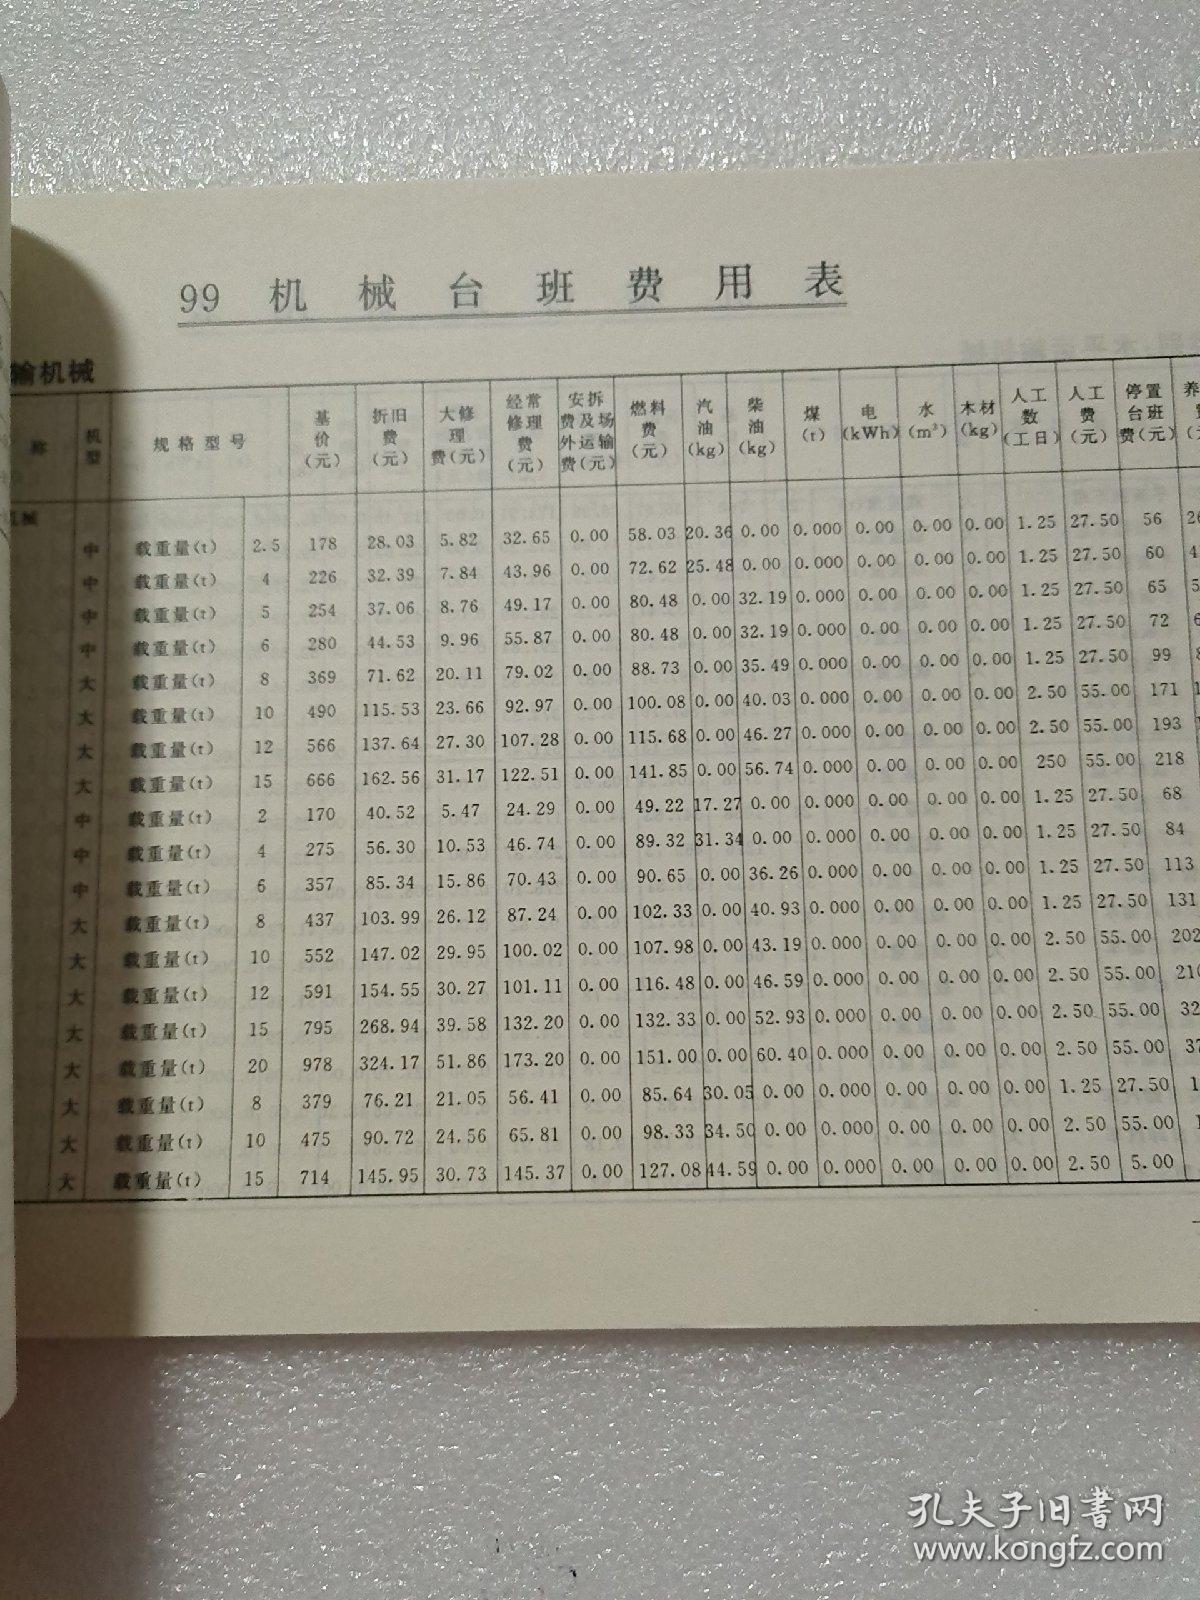 99 机械台班费用表
输机械
称 机型 规格型号 基价(元) 折旧费(元) 大修理费(元) 经常修理费(元) 安拆费及场外运输费(元) 燃料费(元) 汽油(kg) 柴油(kg) 煤(t) 电(kWh) 水(m³) 木材(kg) 人工数(工日) 人工费(元) 停置台班费(元) 养
机械
中 载重量(t) 2.5 178 28.03 5.82 32.65 0.00 58.03 20.36 0.00 0.000 0.00 0.00 0.00 1.25 27.50 56 26
中 载重量(t) 4 226 32.39 7.84 43.96 0.00 72.62 25.48 0.00 0.000 0.00 0.00 0.00 1.25 27.50 60 4
中 载重量(t) 5 254 37.06 8.76 49.17 0.00 80.48 0.00 32.19 0.000 0.00 0.00 0.00 1.25 27.50 65 5
中 载重量(t) 6 280 44.53 9.96 55.87 0.00 80.48 0.00 32.19 0.000 0.00 0.00 0.00 1.25 27.50 72 6
大 载重量(t) 8 369 71.62 20.11 79.02 0.00 88.73 0.00 35.49 0.000 0.00 0.00 0.00 1.25 27.50 99 8
大 载重量(t) 10 490 115.53 23.66 92.97 0.00 100.08 0.00 40.03 0.000 0.00 0.00 0.00 2.50 55.00 171 1
大 载重量(t) 12 566 137.64 27.30 107.28 0.00 115.68 0.00 46.27 0.000 0.00 0.00 0.00 2.50 55.00 193
大 载重量(t) 15 666 162.56 31.17 122.51 0.00 141.85 0.00 56.74 0.000 0.00 0.00 0.00 250 55.00 218
中 载重量(t) 2 170 40.52 5.47 24.29 0.00 49.22 17.27 0.00 0.000 0.00 0.00 0.00 1.25 27.50 68
中 载重量(t) 4 275 56.30 10.53 46.74 0.00 89.32 31.34 0.00 0.000 0.00 0.00 0.00 1.25 27.50 84
中 载重量(t) 6 357 85.34 15.86 70.43 0.00 90.65 0.00 36.26 0.000 0.00 0.00 0.00 1.25 27.50 113
大 载重量(t) 8 437 103.99 26.12 87.24 0.00 102.33 0.00 40.93 0.000 0.00 0.00 0.00 1.25 27.50 131
大 载重量(t) 10 552 147.02 29.95 100.02 0.00 107.98 0.00 43.19 0.000 0.00 0.00 0.00 2.50 55.00 202
大 载重量(t) 12 591 154.55 30.27 101.11 0.00 116.48 0.00 46.59 0.000 0.00 0.00 0.00 2.50 55.00 210
大 载重量(t) 15 795 268.94 39.58 132.20 0.00 132.33 0.00 52.93 0.000 0.00 0.00 0.00 2.50 55.00 32
大 载重量(t) 20 978 324.17 51.86 173.20 0.00 151.00 0.00 60.40 0.000 0.00 0.00 0.00 2.50 55.00 37
大 载重量(t) 8 379 76.21 21.05 56.41 0.00 85.64 30.05 0.00 0.000 0.00 0.00 0.00 1.25 27.50 1
大 载重量(t) 10 475 90.72 24.56 65.81 0.00 98.33 34.50 0.00 0.000 0.00 0.00 0.00 2.50 55.00 1
大 载重量(t) 15 714 145.95 30.73 145.37 0.00 127.08 44.59 0.00 0.000 0.00 0.00 0.00 2.50 5.00
孔夫子旧书网
www.kongfz.com